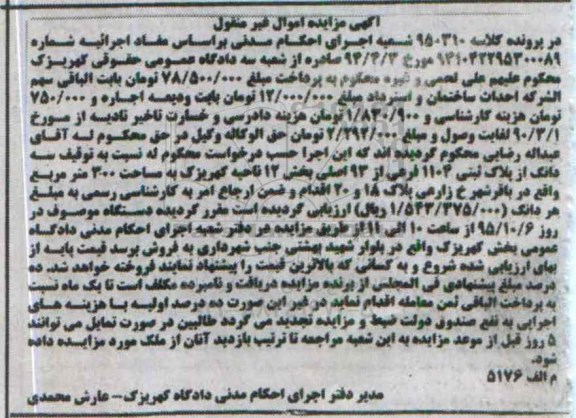 آگهی مزایده اموال غیر منقول
در پرونده کلاسه ۹۵۰۳۱۰ شعبه اجرای احکام مدنی براساس مفاد اجرائیه شماره
۹۴۱۰۴۲۲۹۵۳۰۰۰۸۹ مورخ ۹۴/۴/۳ صادره از شعبه سه دادگاه عمومی حقوقی کهریزک
محکوم علیهم علی لعمی و غیره محکوم به پرداخت مبلغ ۷۸/۵۰۰/۰۰۰ تومان بابت الباقی سهم
الشرکه احداث ساختمان و استرداد مبلغ ۱۲/۰۰۰/۰۰۰ تومان بابت ودیعه اجاره و ۷۵۰/۰۰۰
تومان هزینه کارشناسی و ۱/۸۳۰/۹۰۰ تومان هزینه دادرسی و خسارت تاخیر تادیه از مورخ
۹۰/۳/۱ لغایت وصول و مبلغ ۲/۲۹۲/۰۰۰ تومان حق الوکاله وکیل در حق محکوم له آقای
عبداله رضایی محکوم گردیده اند که این اجرا حسب درخواست محکوم له نسبت به توقیف سه
دانگ از پلاک ثبتی ۱۱۰۴ فرعی از ۹۳ اصلی بخش ۱۲ ناحیه کهریزک به مساحت ۳۰۰ متر مربع
واقع در باقرشهر خ زارعی پلاک ۱۸ و ۲۰ اقدام و ضمن ارجاع امر به کارشناسی رسمی به مبلغ
هر دانگ (۱/۵۴۳/۳۷۵/۰۰۰ ریال) ارزیابی گردیده است مقرر گردیده دستگاه موصوف در
روز ۹۵/۱۰/۶ از ساعت ۱۰ الی ۱۱ از طریق مزایده در دفتر شعبه اجرای احکام مدنی دادگاه
عمومی بخش کهریزک واقع در بلوار شهید بهشتی جنب شهرداری به فروش برسد قیمت پایه از
بهای ارزیابی شده شروع و به کسانی که بالاترین قیمت را پیشنهاد نمایند فروخته خواهد شد. ده
درصد مبلغ پیشنهادی فی المجلس از برنده مزایده دریافت و نامبرده مکلف است تا یک ماه نسبت
به پرداخت الباقی ثمن معامله اقدام نماید در غیر این صورت ده درصد اولیه با هزینه های
اجرایی به نفع صندوق دولت ضبط و مزایده تجدید می گردد طالبین در صورت تمایل می توانند
۵ روز قبل از موعد مزایده به این شعبه مراجعه تا ترتیب بازدید آنان از ملک مورد مزایده داده
شود.
م الف ۵۱۷۶
مدیر دفتر اجرای احکام مدنی دادگاه کهریزک – عارش محمدی